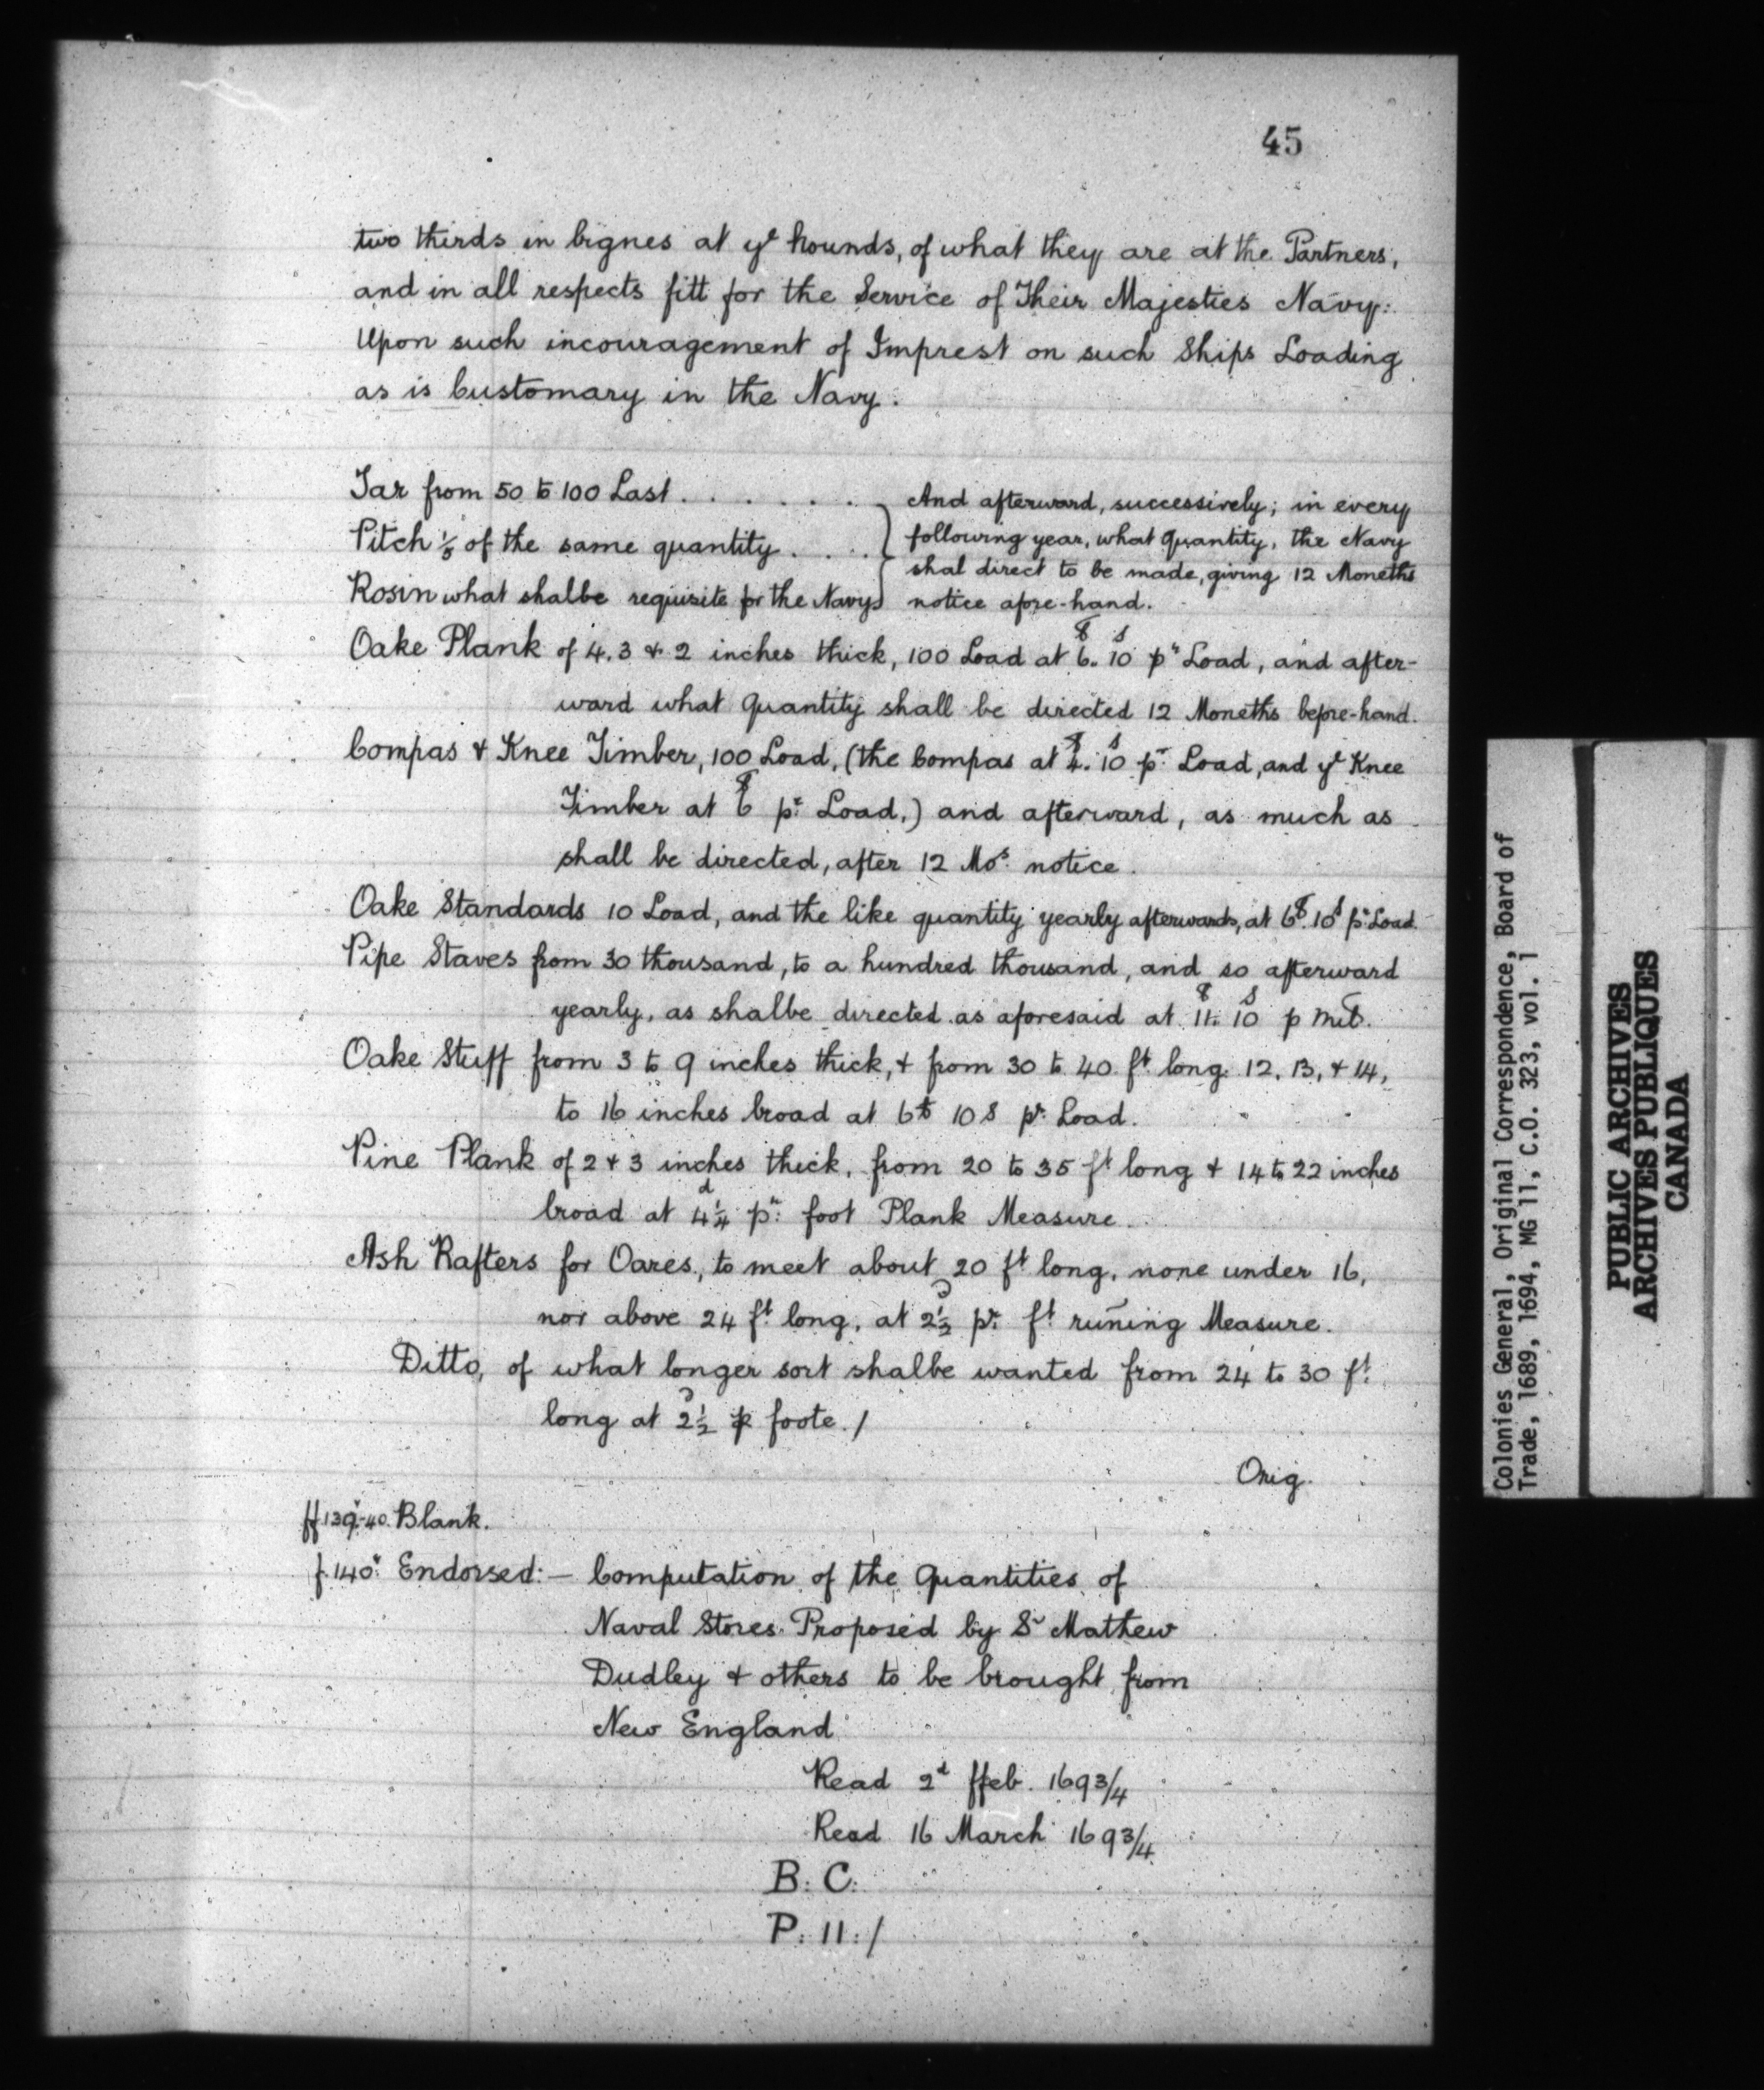 45
two thirds in bignes at yᵉ hounds, of what they are at the Partners,
and in all respects fitt for the Service of Their Majesties Navy:
Upon such incouragement of Imprest on such Ships Loading
as is Customary in the Navy.
Tar from 50 to 100 Last . . . . . . .
Pitch ⅕ of the same quantity . . . .
Rosin what shalbe requisite for the Navy
And afterward, successively; in every
following year, what Quantity, the Navy
shal direct to be made, giving 12 Moneths
notice afore-hand.
Oake Plank of 4. 3 & 2 inches thick, 100 Load at 6.£ 10ˢ pʳ Load, and after-
ward what Quantity shall be directed 12 Moneths before-hand.
Compas & Knee Timber, 100 Load, (the Compas at 4.£ 10ˢ pʳ Load, and yᵉ Knee
Timber at 6£ pʳ Load,) and afterward, as much as
shall be directed, after 12 Moˢ notice.
Oake Standards 10 Load, and the like quantity yearly afterwards, at 6£. 10ˢ pʳ Load.
Pipe Staves from 30 thousand, to a hundred thousand, and so afterward
yearly, as shalbe directed as aforesaid at 11.£ 10ˢ p
Oake Stuff from 3 to 9 inches thick, & from 30 to 40 fᵗ long. 12, 13, & 14,
to 16 inches broad at 6£ 10s pʳ Load.
Pine Plank of 2 & 3 inches thick, from 20 to 35 fᵗ long & 14 to 22 inches
broad at 4¼ᵈ pʳ foot Plank Measure.
Ash Rafters for Oares, to meet about 20 fᵗ long, none under 16,
nor above 24 fᵗ long, at 2½ᵈ pʳ fᵗ runīng Measure.
Ditto, of what longer sort shalbe wanted from 24 to 30 fᵗ
long at 2½ᵈ p foote./
Orig.
ff 139ᵛ-40. Blank.
f. 140ᵛ Endorsed:— Computation of the Quantities of
Naval Stores Proposed by Sʳ Mathew
Dudley & others to be brought from
New England
Read 2ᵈ ffeb. 1693/4
Read 16 March 1693/4
B: C:
P: 11:/
Colonies General, Original Correspondence, Board of
Trade, 1689, 1694, MG 11, C.O. 323, vol. 1
PUBLIC ARCHIVES
ARCHIVES PUBLIQUES
CANADA